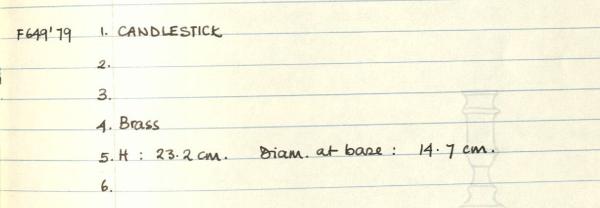 F649'79 1. CANDLESTICK
2.
3.
4. Brass
5. H : 23.2 cm. Diam. at base : 14.7 cm.
6.